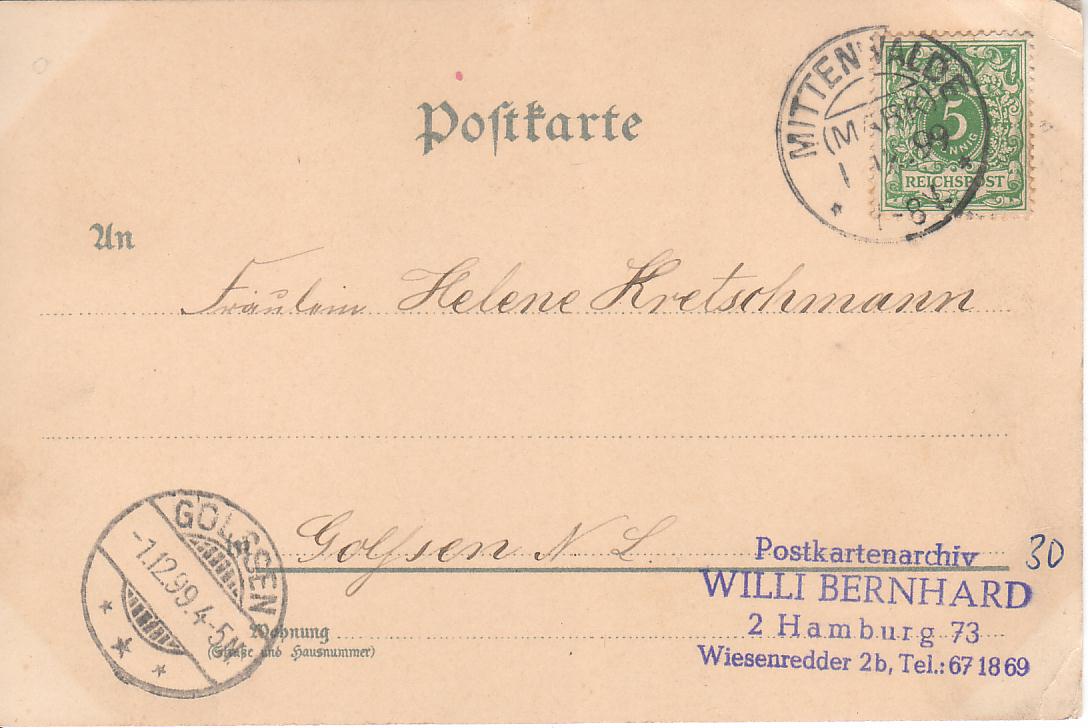 Postkarte
MITTENWALDE
(MARK)
99
7-8V.
5
PFENNIG
REICHSPOST
An
Fräulein Helene Kretschmann
GOLSSEN
-1.12.99.4-5N.
in Golssen N. L.
Postkartenarchiv
30
WILLI BERNHARD
2 Hamburg 73
Wiesenredder 2b, Tel.: 671869
Wohnung
(Straße und Hausnummer)